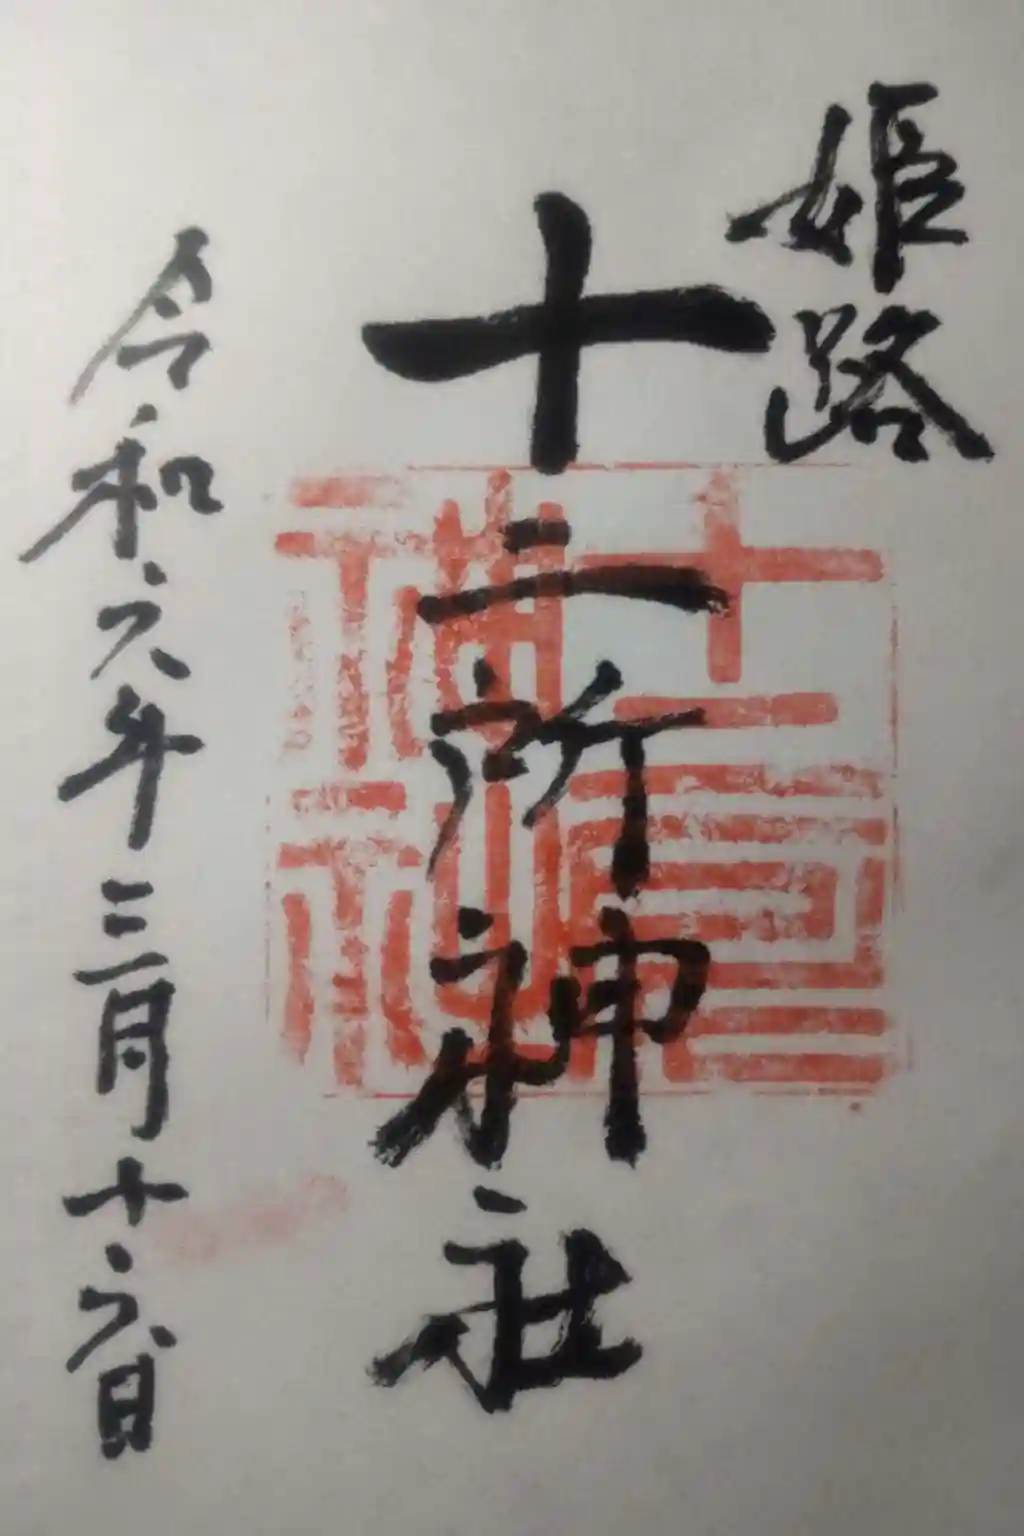 姫路
十二所神社
十二所神社
令和六年三月十六日